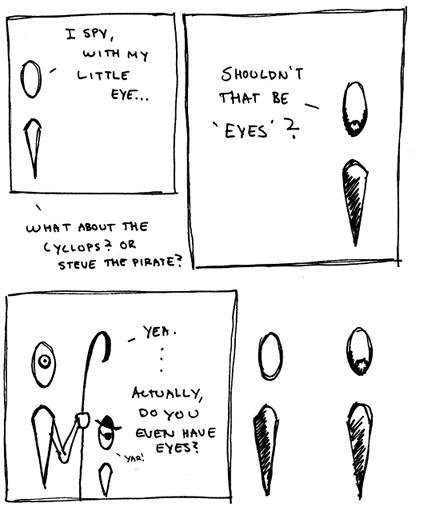 I SPY,
WITH MY
LITTLE
EYE...
SHOULDN'T
THAT BE
'EYES'?
WHAT ABOUT THE
CYCLOPS? OR
STEVE THE PIRATE?
YEA.
ACTUALLY,
DO YOU
EVEN HAVE
EYES?
YAR!